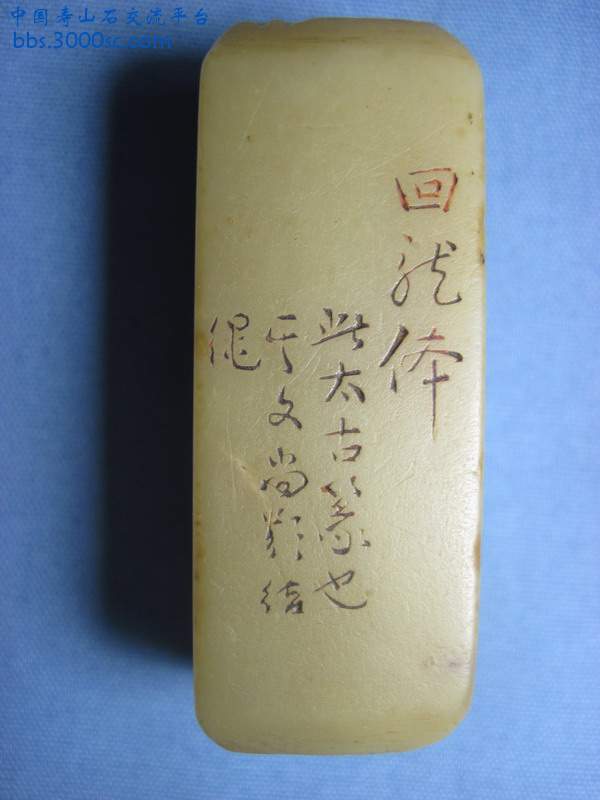 中国寿山石交流平台
bbs.3000sc.com
回龍体
此太古篆也
其文尚類結
繩